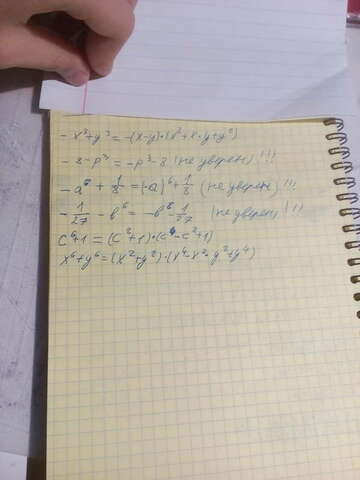 - x³+y³=-(x-y)·(x²+x·y+y²)
- 8-p³=-p³-8 (не уверен)!!!
- a⁶+1/8=(-a)⁶+1/8 (не уверен)!!!
- 1/27-b⁶=-b⁶-1/27 (не уверен)!!!
c⁶+1=(c²+1)·(c⁴-c²+1)
x⁶+y⁶=(x²+y²)·(x⁴-x²·y²+y⁴)